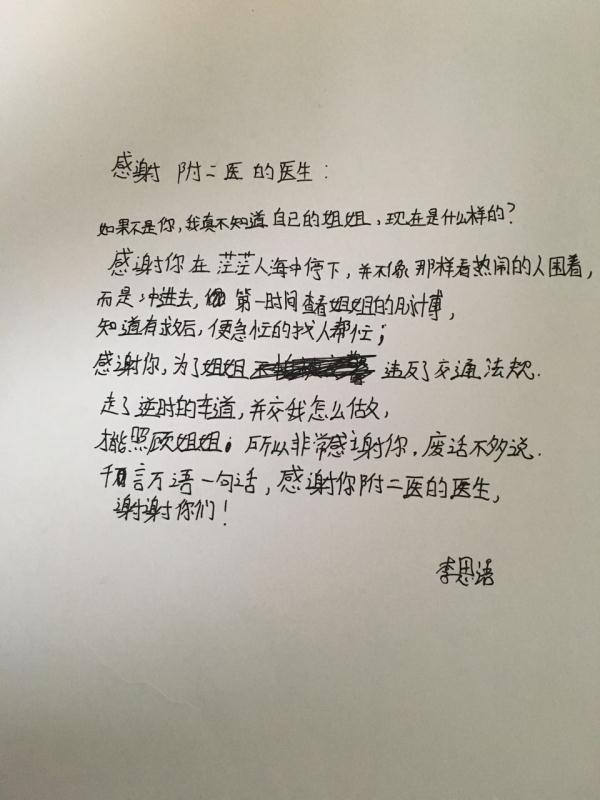 感谢 附二医的医生：
如果不是你，我真不知道自己的姐姐，现在是什么样的？
感谢你在茫茫人海中停下，并不像那样看热闹的人围着，
而是冲进去，第一时间查看姐姐的脉博，
知道有救后，便急忙的找人帮忙；
感谢你，为了姐姐 违反了交通法规.
走了逆时的车道，并交我怎么做，
才能照顾姐姐。所以非常感谢你，废话不多说.
千言万语一句话，感谢你附二医的医生，
谢谢你们！
李思语